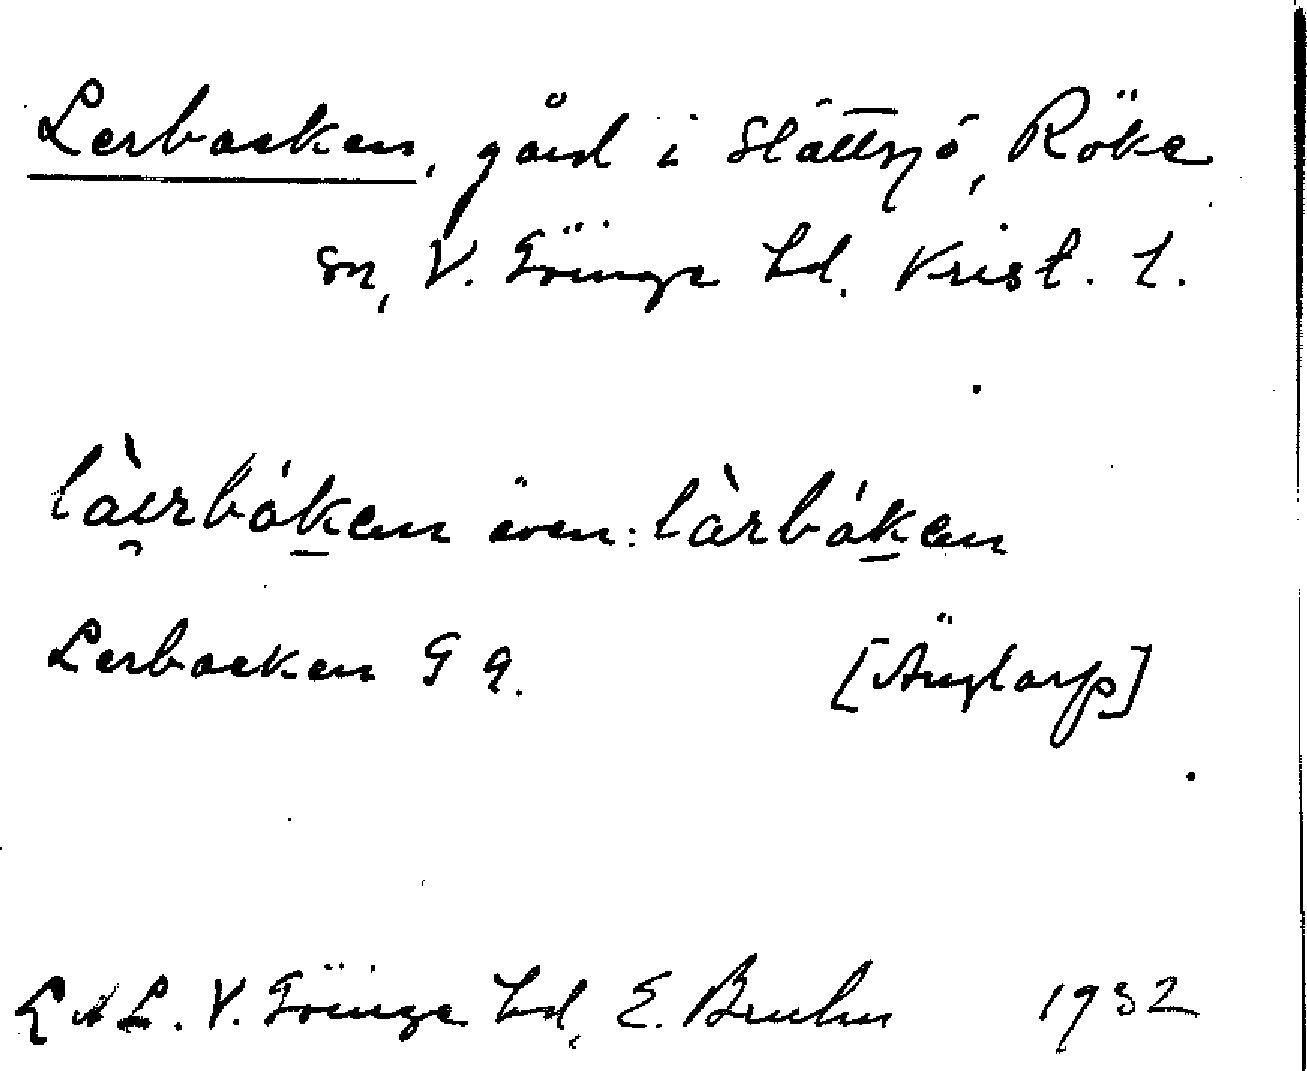 Lerbacken, gård i Slättsjö, Röke
sn, V. Göinge hd. Krist. l.
làirbáken även: làrbáken
Lerbacken G 9. [Ängtarp]
LAL. V. Göinge hd, E. Bruhn 1932